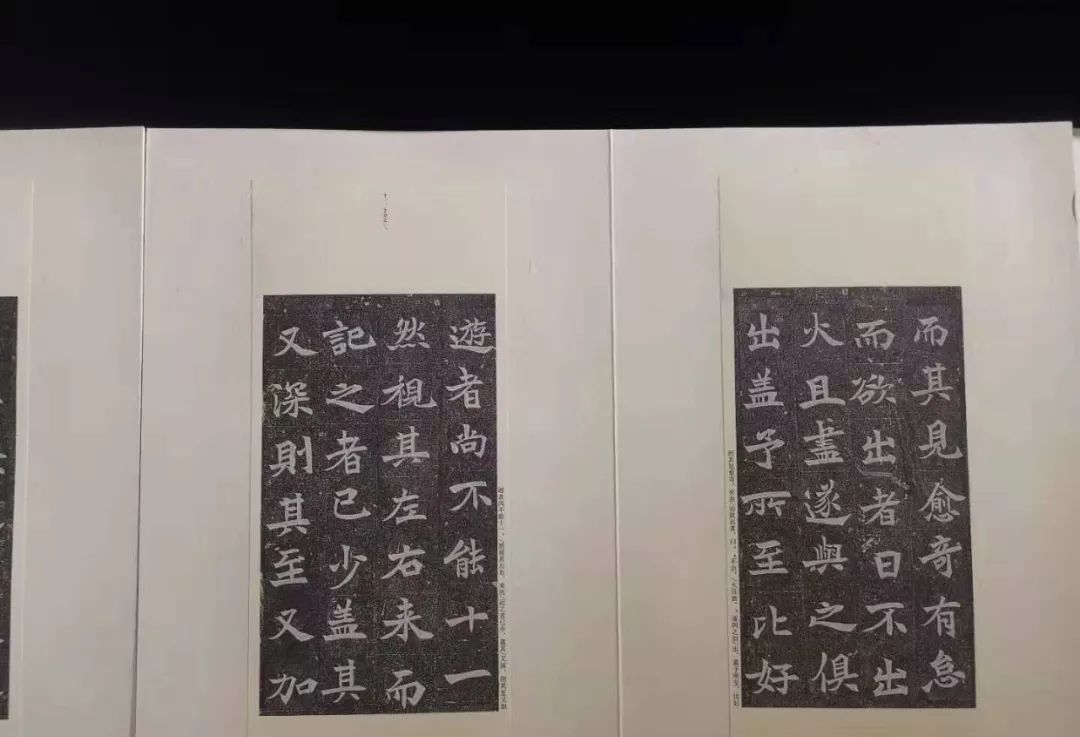 而其見愈奇有怠
而欲出者曰不出
火且盡遂與之俱
出盖予所至比好
遊者尚不能十一
然視其左右来而
記之者已少盖其
又深則其至又加